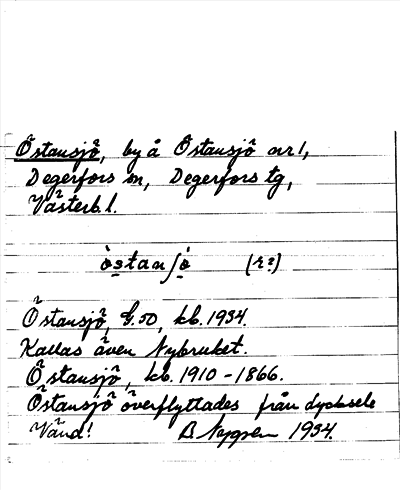 Östansjö, by å Östansjö nr 1,
Degerfors sn, Degerfors tg,
Västerb. l.
östanʃö (r?)
Östansjö, G.50, kb. 1934.
Kallas även Nybruket.
Östansjö, kb. 1910-1866.
Östansjö överflyttades från Lycksele
Vänd! B. Nygren 1934.